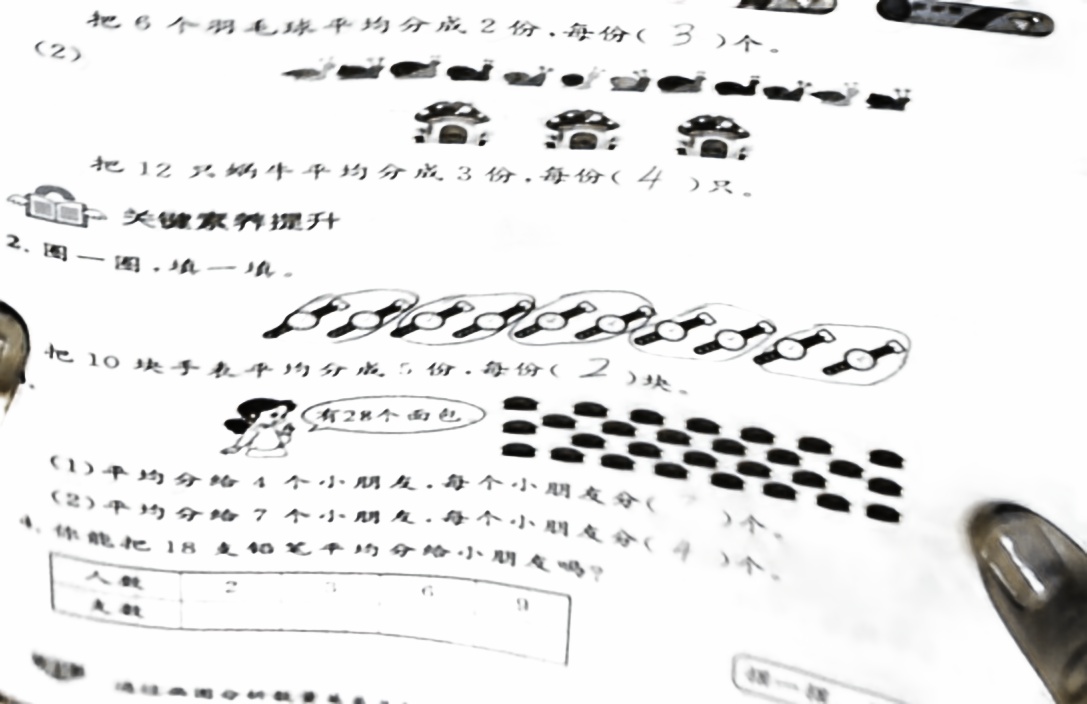 把6个羽毛球平均分成2份,每份( 3 )个。
(2)
把12只蜗牛平均分成3份,每份( 4 )只。
关键素养提升
2. 圈一圈,填一填。
把10块手表平均分成5份,每份( 2 )块。
有28个面包
(1)平均分给4个小朋友,每个小朋友分( )个。
(2)平均分给7个小朋友,每个小朋友分( 4 )个。
4. 你能把18支铅笔平均分给小朋友吗?
人数 2 3 6 9
支数
通过画图分析数量关系